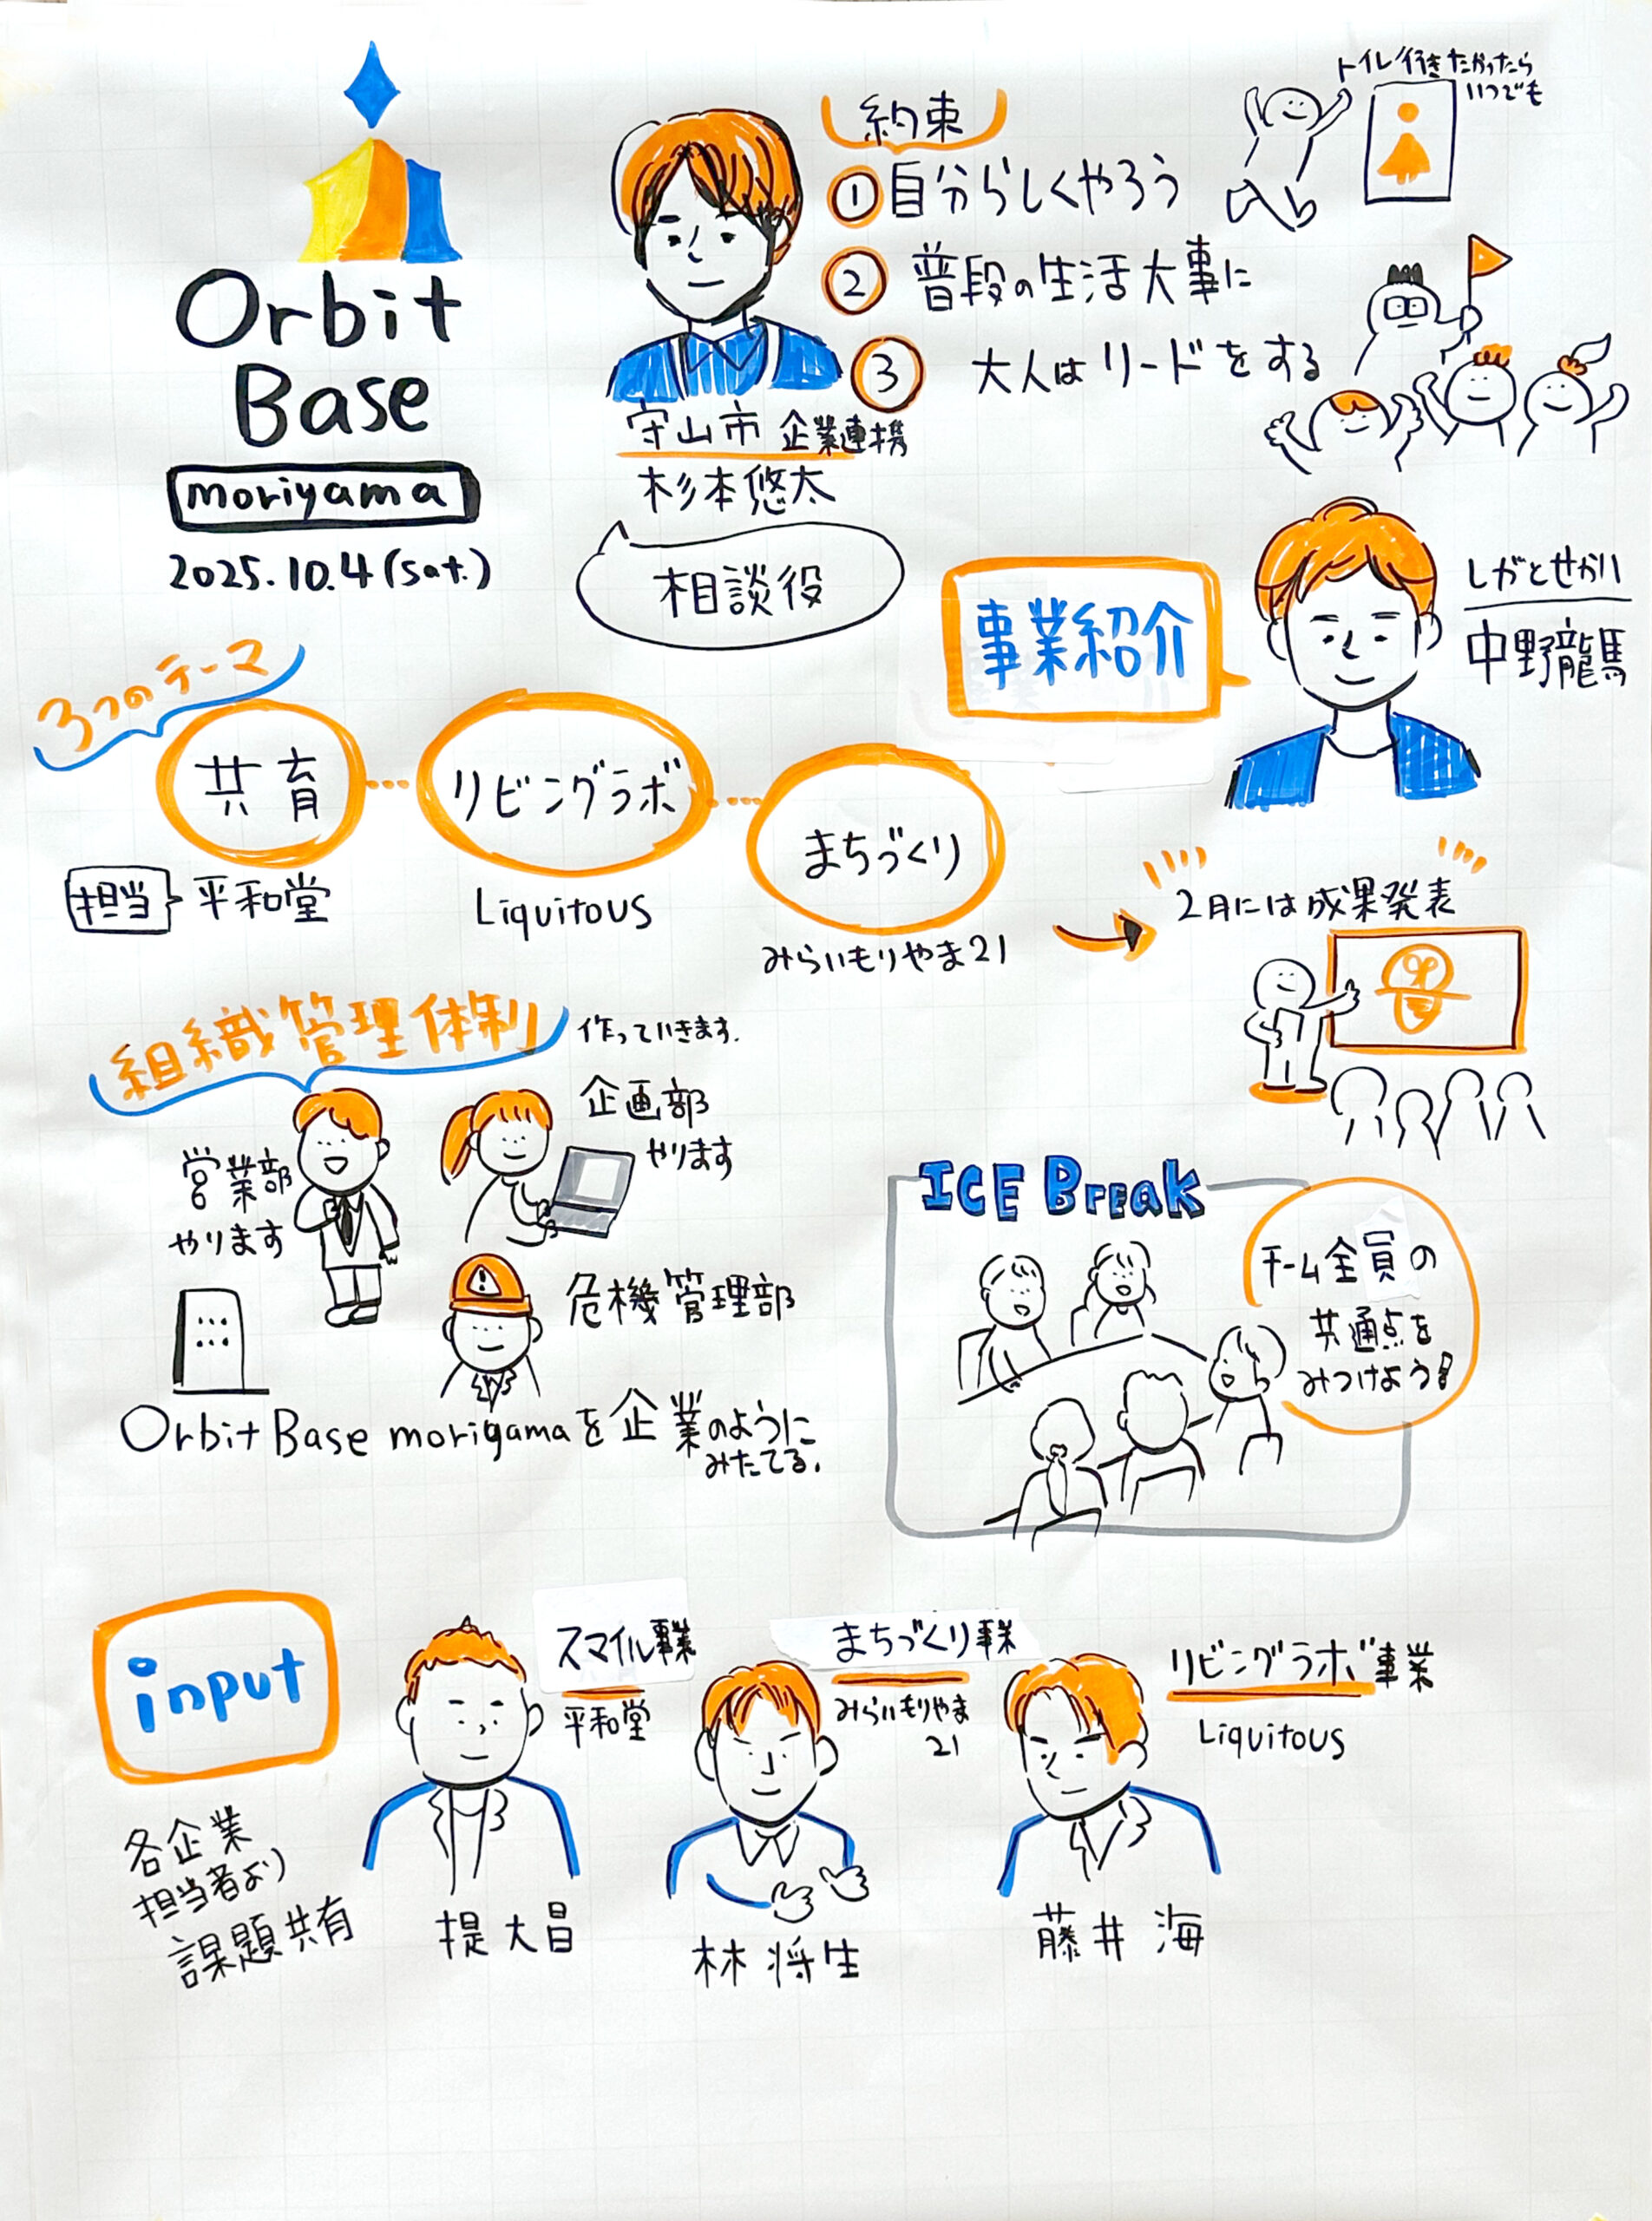 Orbit
Base
moriyama
2025.10.4(sat.)
約束
① 自分らしくやろう
② 普段の生活大事に
③ 大人はリードをする
トイレ行きたかったら
いつでも
守山市 企業連携
杉本悠太
相談役
事業紹介
しがとせかい
中野龍馬
3つのテーマ
共育
リビングラボ
まちづくり
担当
平和堂
Liquitous
みらいもりやま21
2月には成果発表
組織管理体制
作っていきます.
営業部
やります
企画部
やります
危機管理部
Orbit Base moriyamaを企業のように
みたてる.
ICE Break
チーム全員の
共通点を
みつけよう!
input
各企業
担当者より
課題共有
スマイル事業
平和堂
提大昌
まちづくり事業
みらいもりやま
21
林 将生
リビングラボ事業
Liquitous
藤井 海